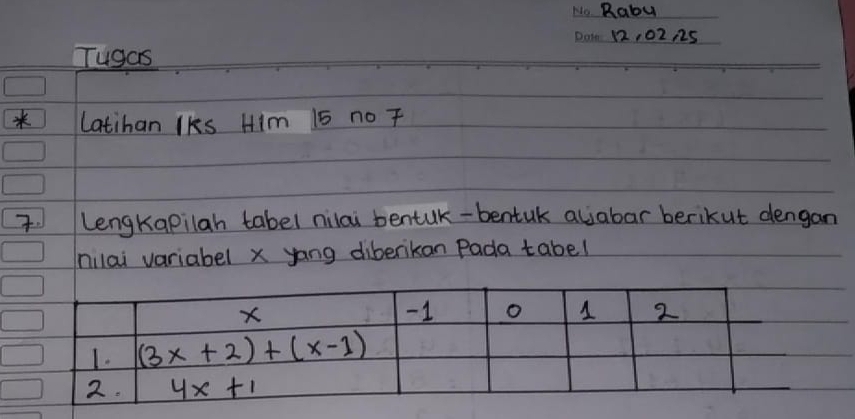 No. Rabu
Date: 12,02,25
Tugas
* Latihan lks Hlm 15 no 7
7. Lengkapilah tabel nilai bentuk-bentuk aljabar berikut dengan
nilai variabel x yang diberikan Pada tabel
x -1 0 1 2
1. (3x + 2) + (x-1)
2. 4x + 1